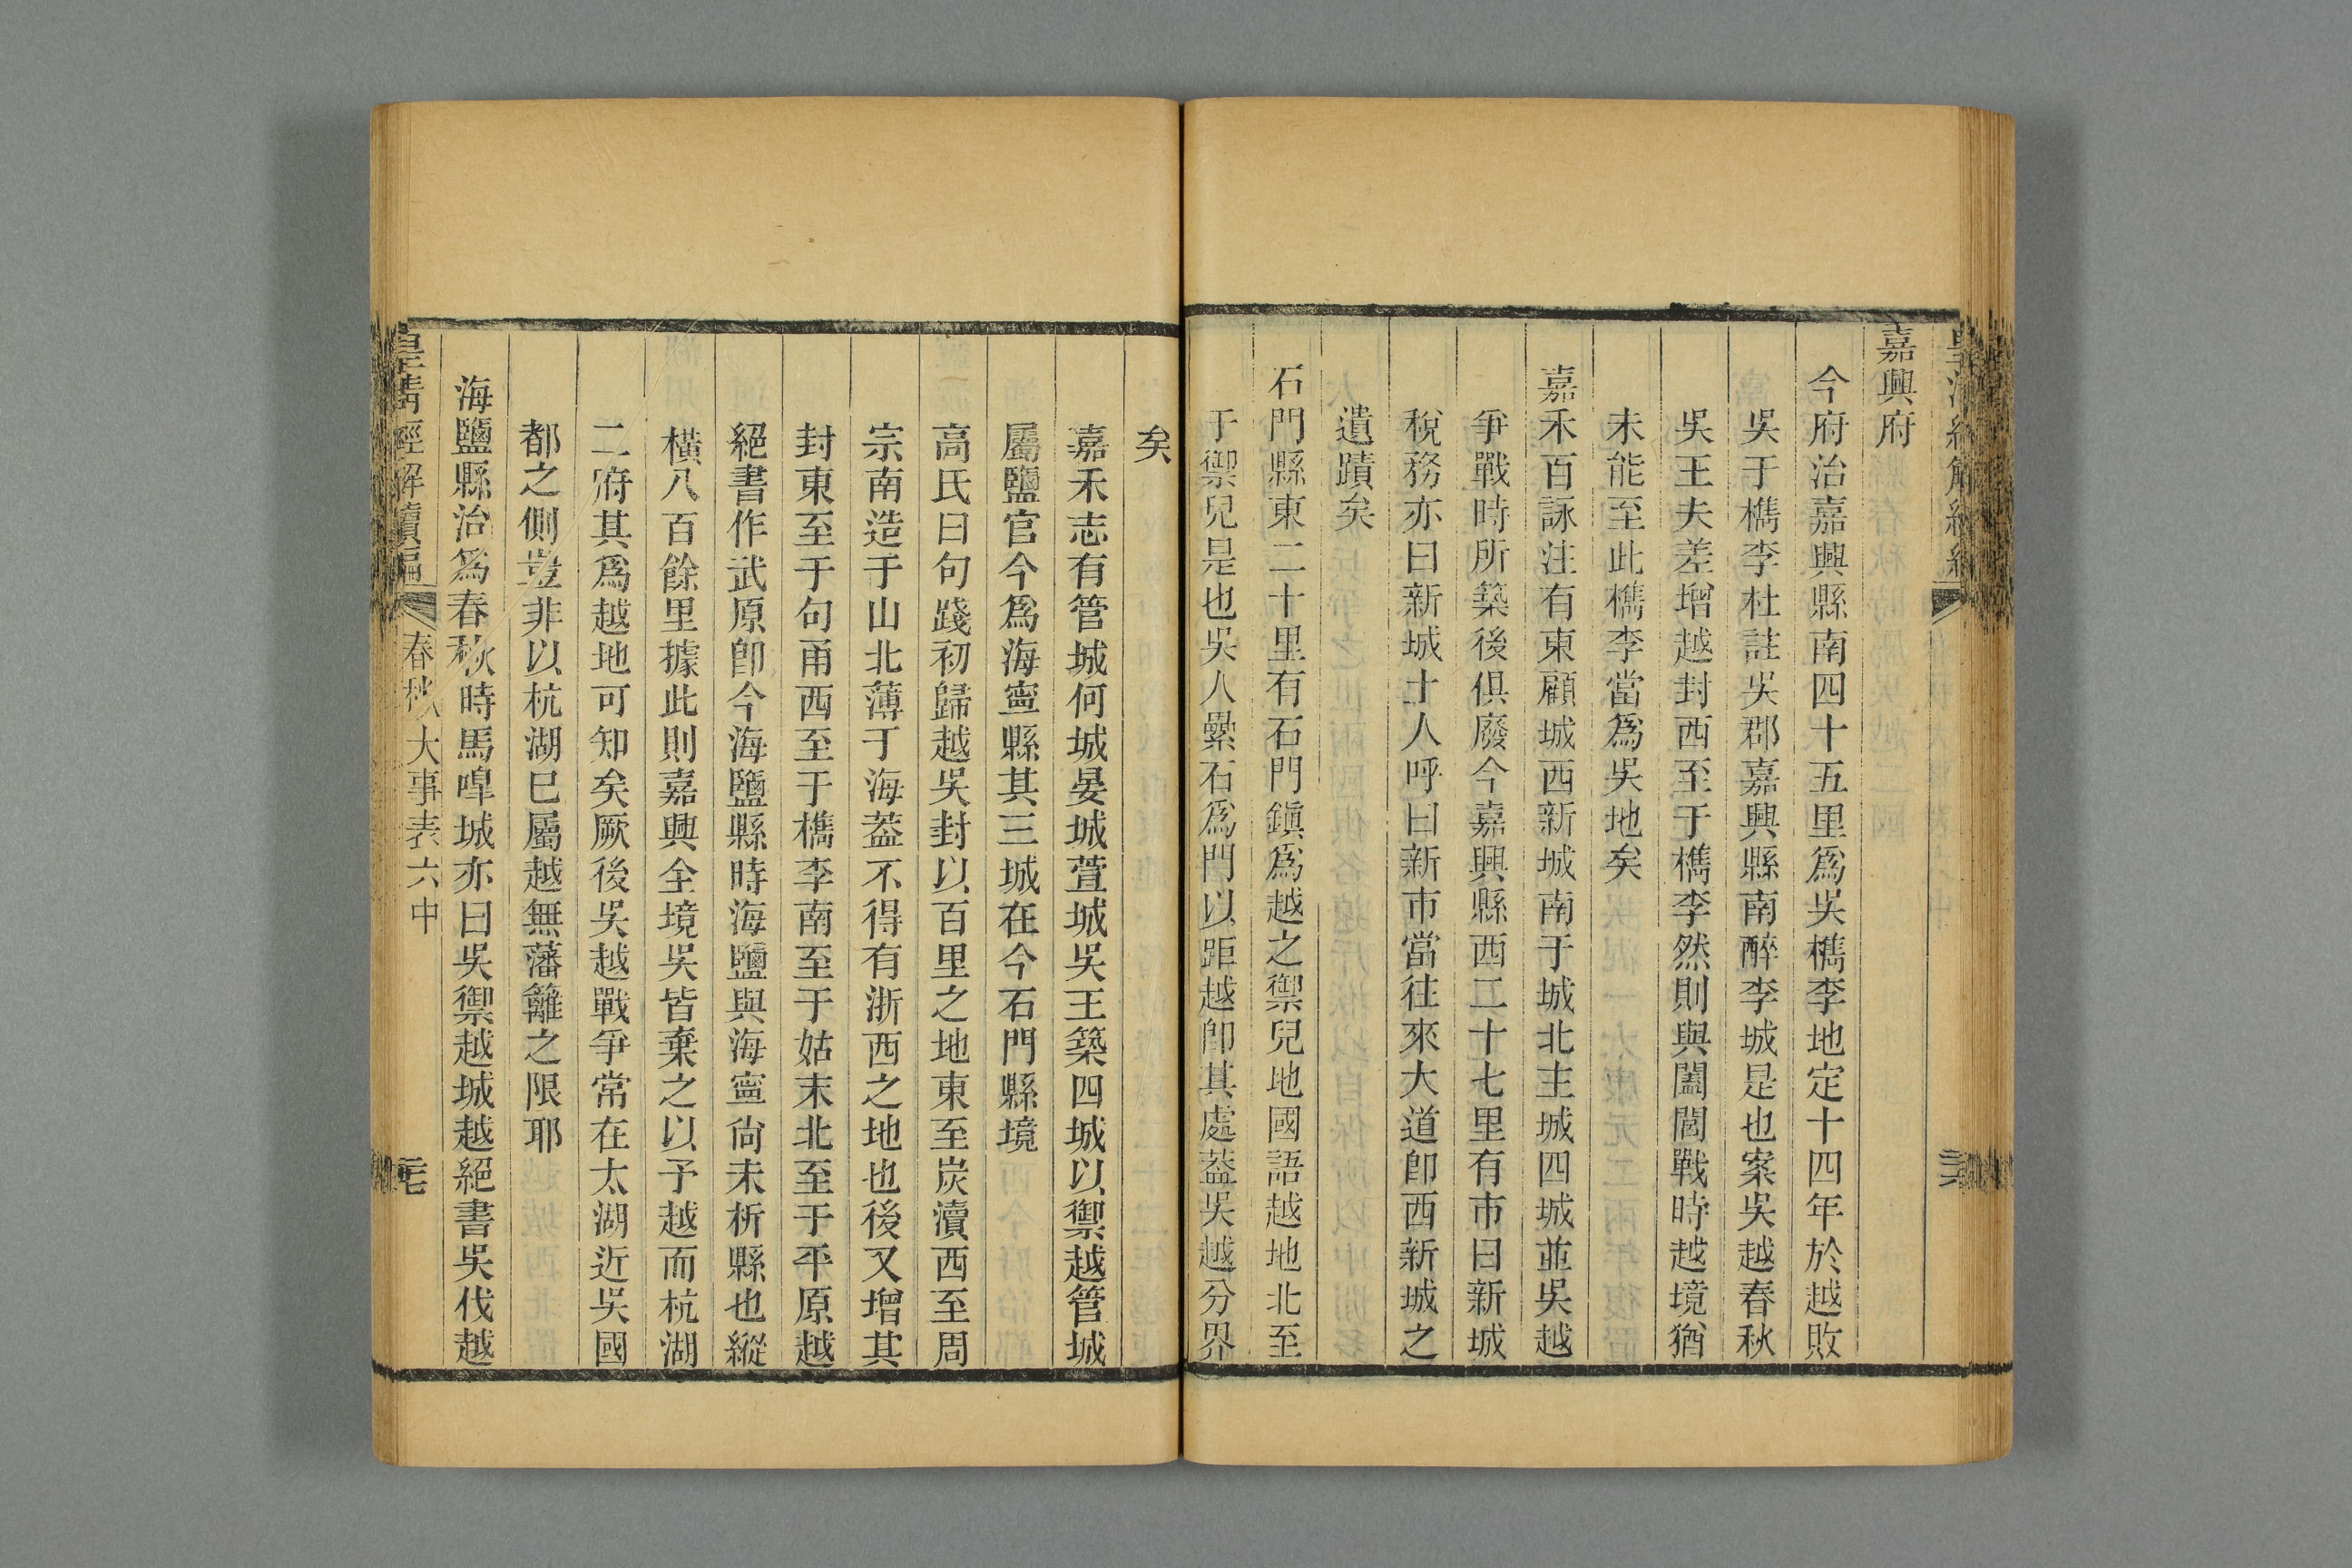 嘉興府
今府治嘉興縣南四十五里爲吳檇李地定十四年於越敗
吳于檇李杜註吳郡嘉興縣南醉李城是也案吳越春秋
吳王夫差增越封西至于檇李然則與闔閭戰時越境猶
未能至此檇李當爲吳地矣
嘉禾百詠注有東顧城西新城南于城北主城四城並吳越
爭戰時所築後俱廢今嘉興縣西二十七里有市曰新城
稅務亦曰新城土人呼曰新市當往來大道卽西新城之
遺蹟矣
石門縣東二十里有石門鎭爲越之禦兒地國語越地北至
于禦兒是也吳人壘石爲門以距越卽其處葢吳越分界
矣
嘉禾志有管城何城晏城萱城吳王築四城以禦越管城
屬鹽官今爲海寧縣其三城在今石門縣境
高氏曰句踐初歸越吳封以百里之地東至炭瀆西至周
宗南造于山北薄于海葢不得有浙西之地也後又增其
封東至于句甬西至于檇李南至于姑末北至于平原越
絕書作武原卽今海鹽縣時海鹽與海寧尙未析縣也縱
橫八百餘里據此則嘉興全境吳皆棄之以予越而杭湖
二府其爲越地可知矣厥後吳越戰爭常在太湖近吳國
都之側豈非以杭湖巳屬越無藩籬之限耶
海鹽縣治爲春秋時馬嘷城亦曰吳禦越城越絕書吳伐越
皇淸經解續編 春秋大事表六中 三七